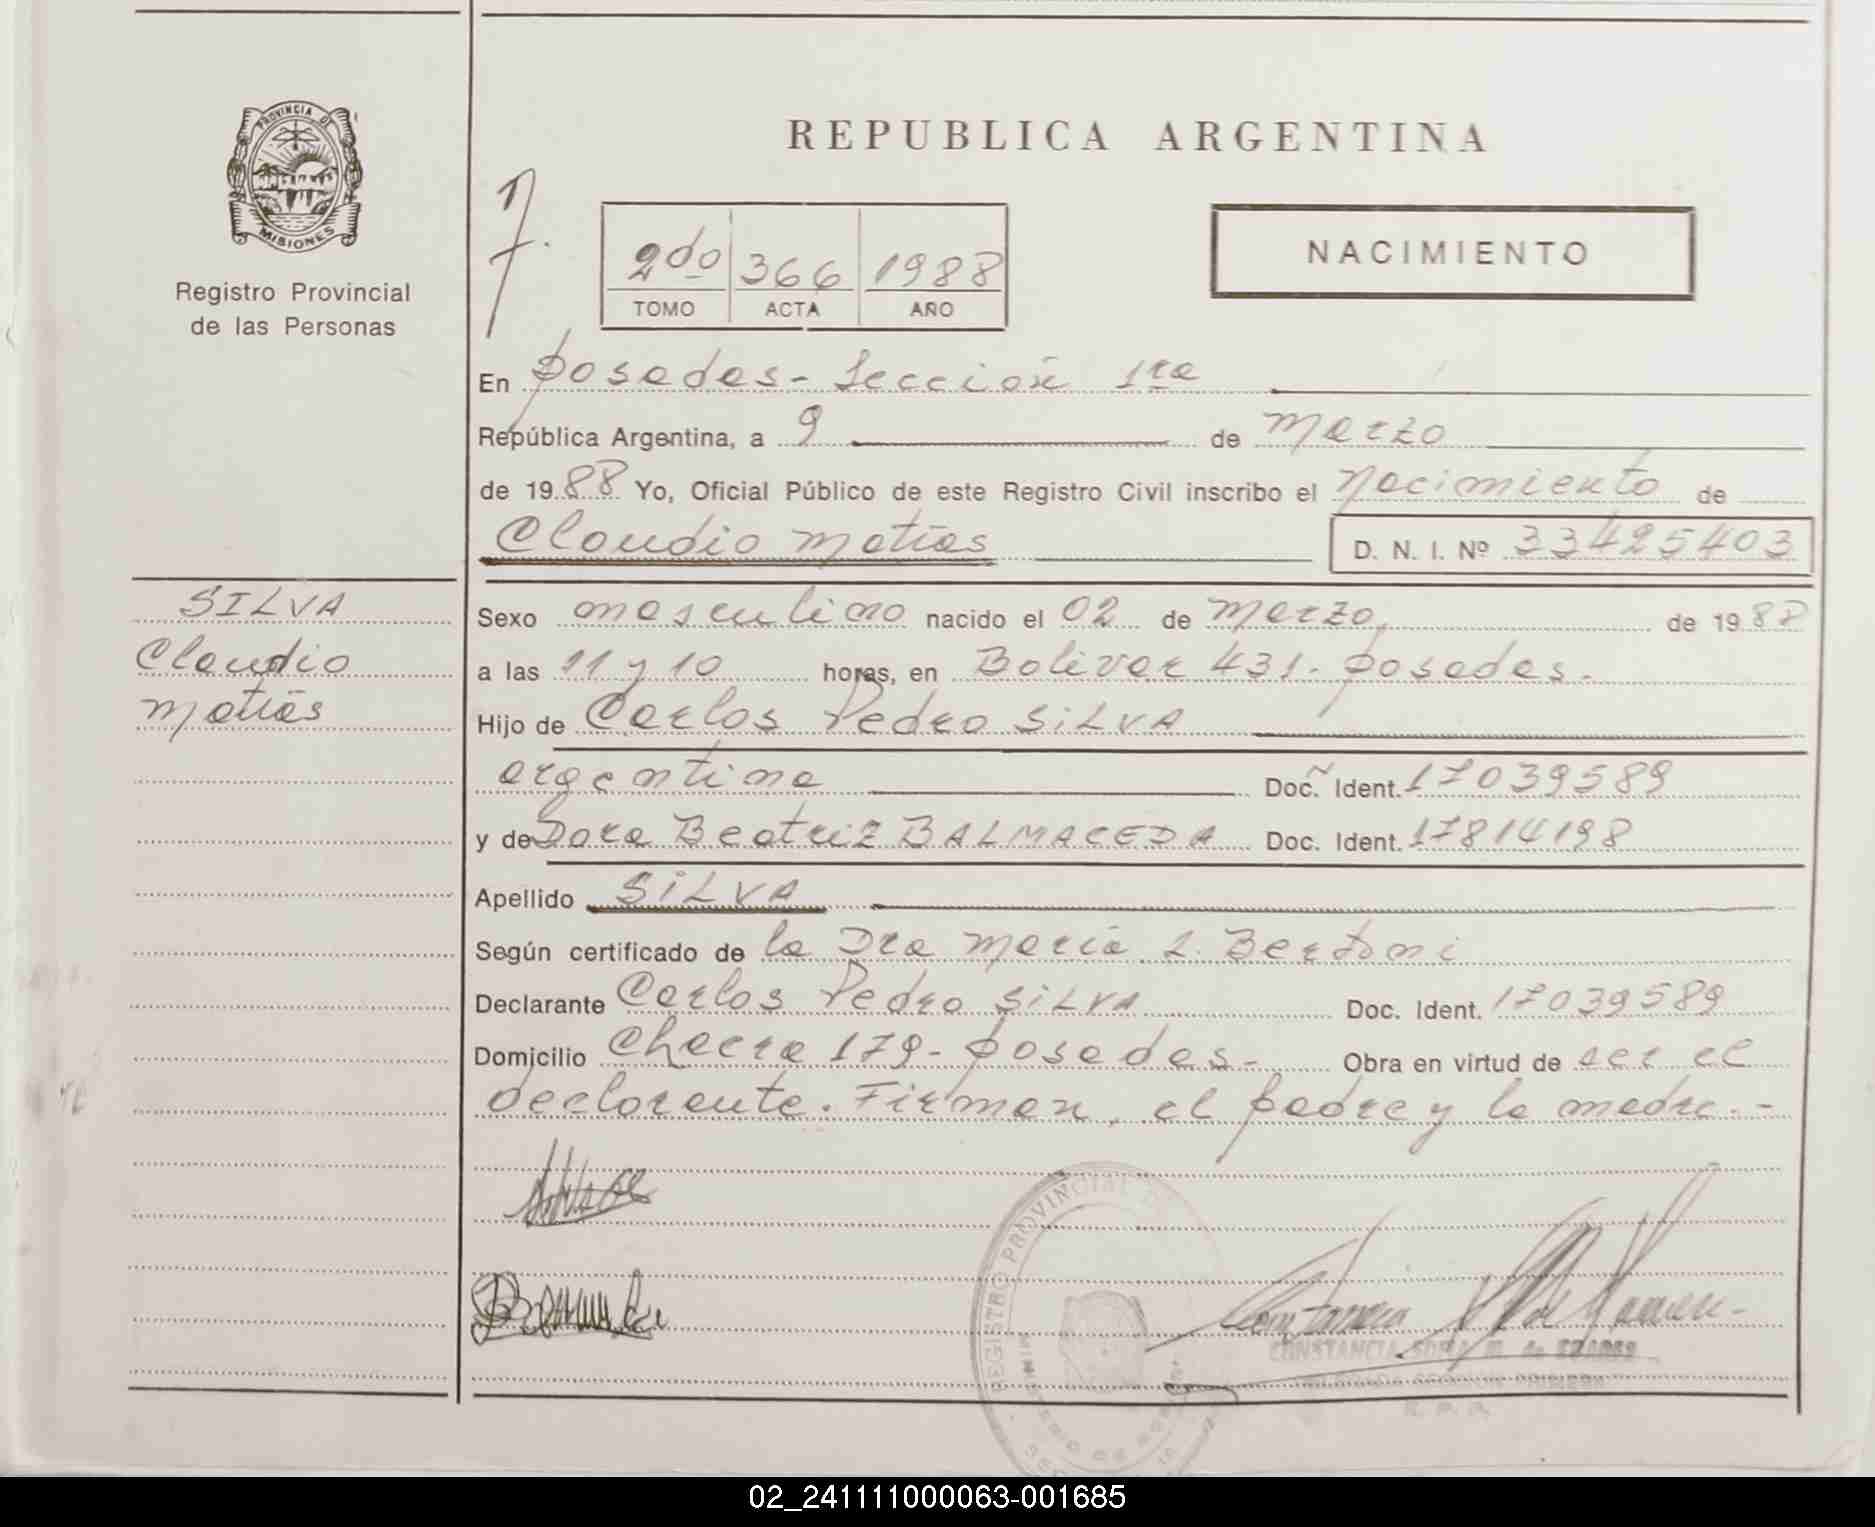 PROVINCIA DE
MISIONES
Registro Provincial
de las Personas
SILVA
Claudio
Matías
REPUBLICA ARGENTINA
NACIMIENTO
2do 366 1988
TOMO ACTA AÑO
En Posadas - Sección 1ra
República Argentina, a 9 de Marzo
de 1988 Yo, Oficial Público de este Registro Civil inscribo el Nacimiento de
Claudio Matías D. N. I. Nº 33425403
Sexo masculino nacido el 02 de Marzo, de 1988
a las 11 y 10 horas, en Bolivar 431 - Posadas.
Hijo de Carlos Pedro SILVA
argentina Doc. Ident. 17039589
y de Dora Beatriz BALMACEDA Doc. Ident. 17814198
Apellido SILVA
Según certificado de la Dra María L. Bertoni
Declarante Carlos Pedro SILVA Doc. Ident. 17039589
Domicilio Chacra 179 - Posadas - Obra en virtud de ser el
declarante. Firman, el padre y la madre. -
REGISTRO PROVINCIAL DE
CONSTANCIA
02_241111000063-001685